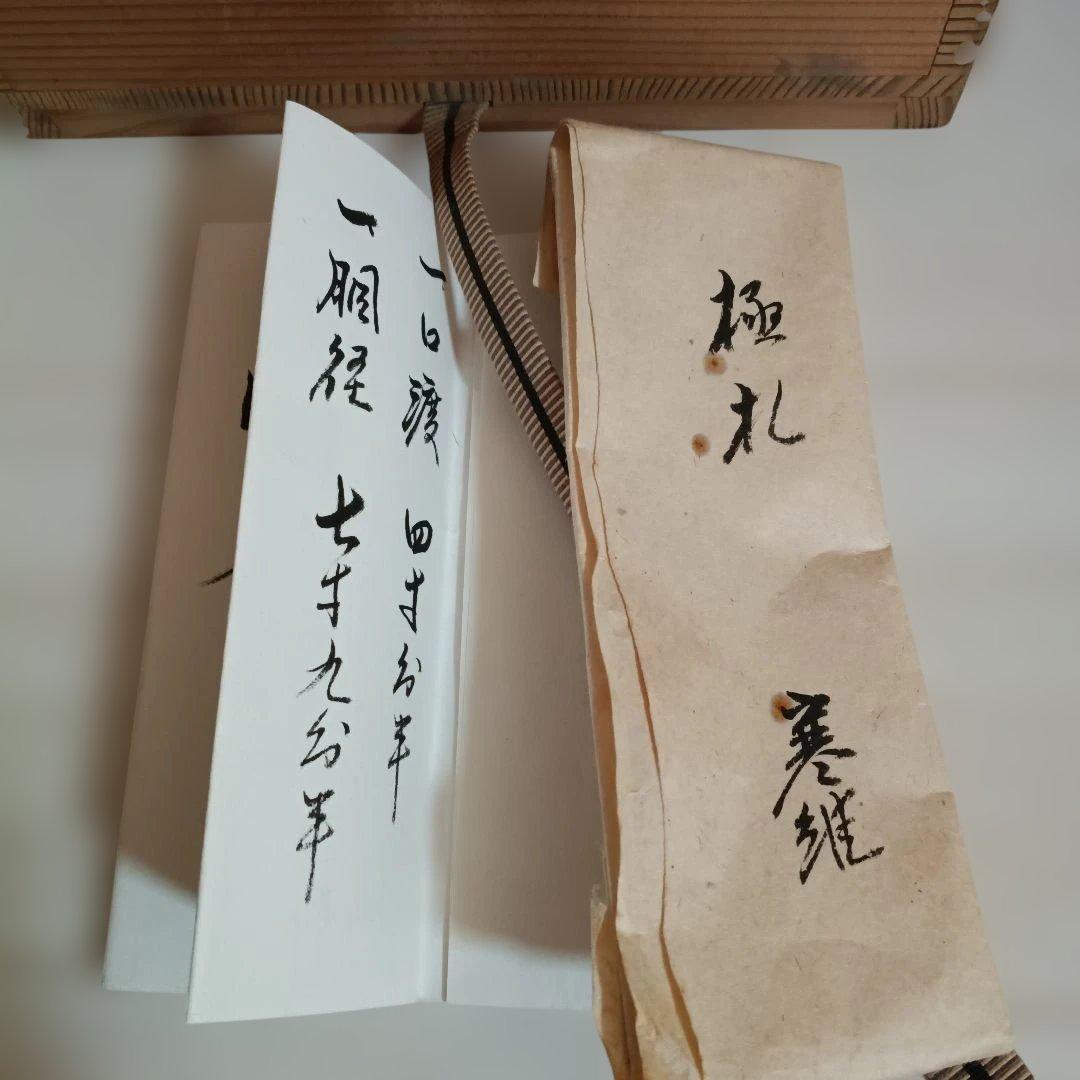 極札
寒雉
一口渡 四寸分半
一胴径 七寸九分半